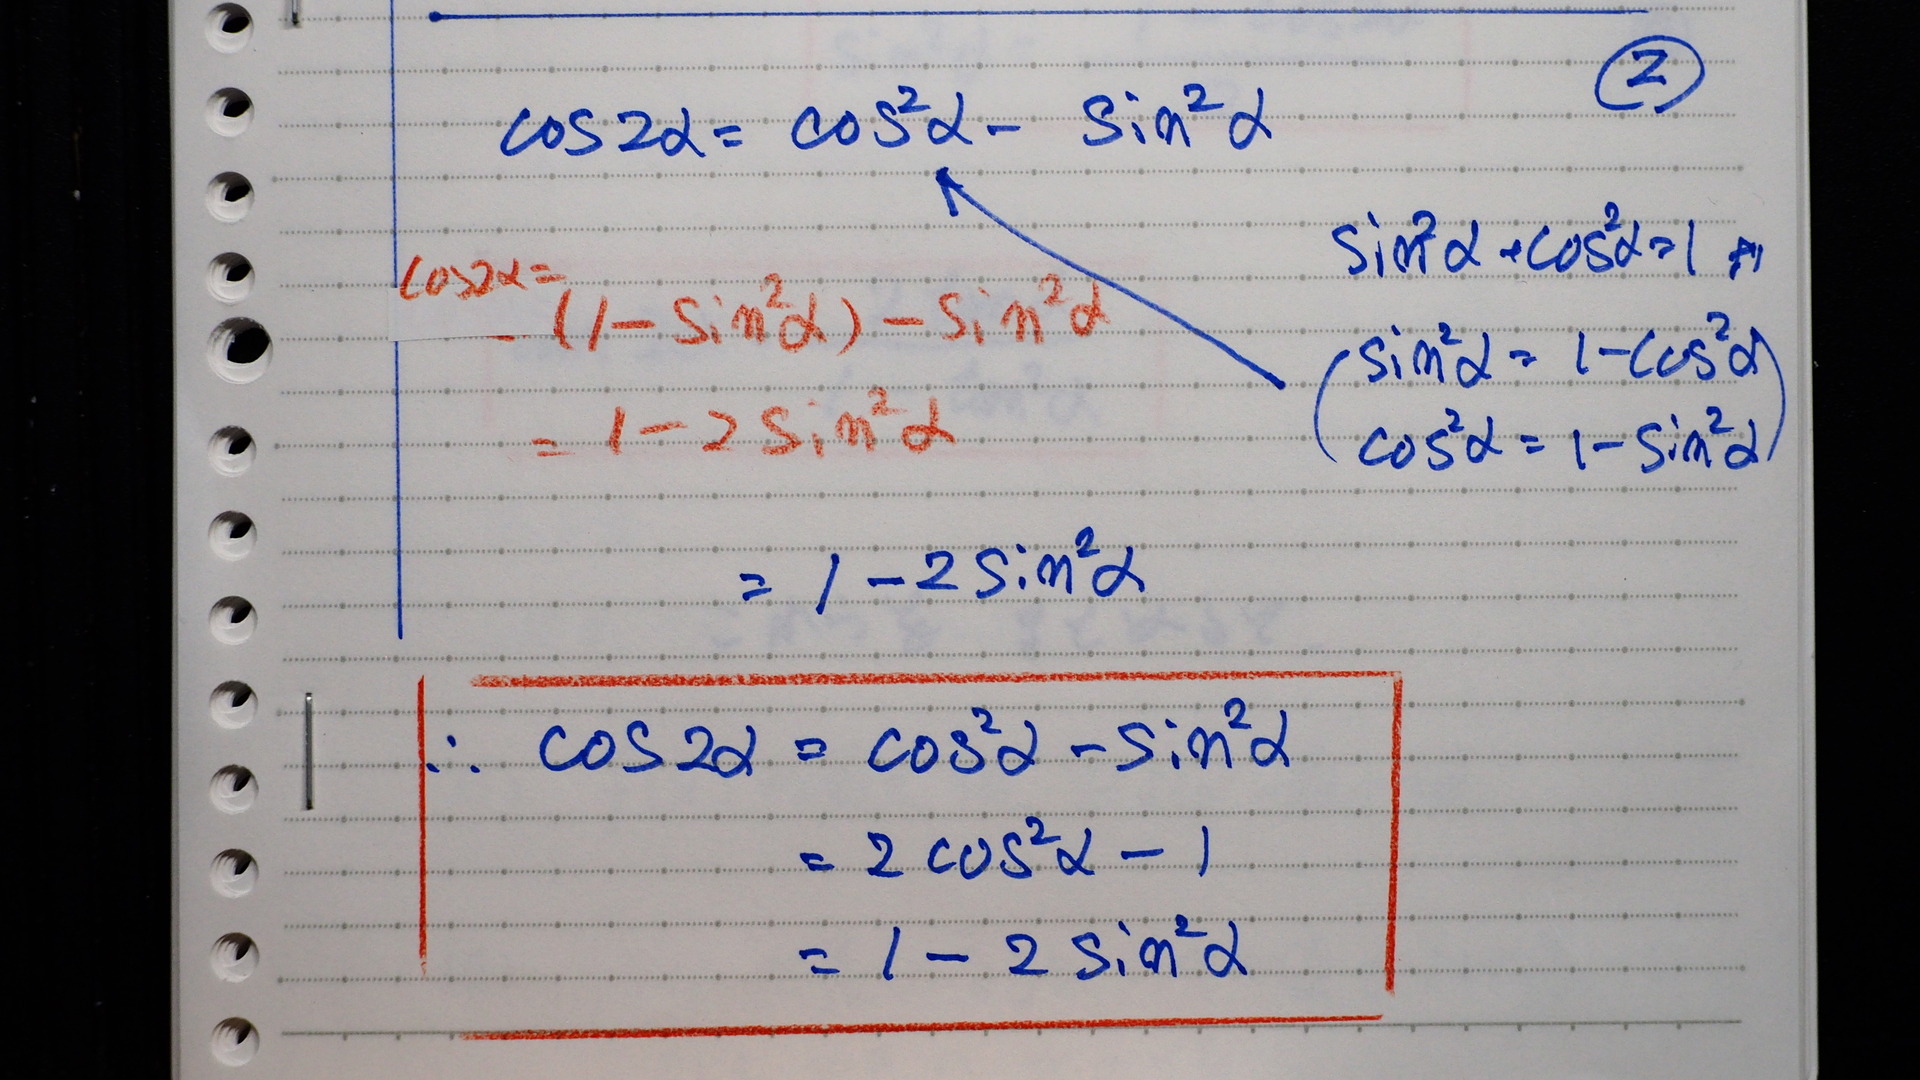 ②
cos2α = cos²α - sin²α
sin²α + cos²α = 1
cos2α =
= (1 - sin²α) - sin²α
(sin²α = 1 - cos²α
cos²α = 1 - sin²α)
= 1 - 2 sin²α
= 1 - 2 sin²α
∴ cos2α = cos²α - sin²α
= 2 cos²α - 1
= 1 - 2 sin²α